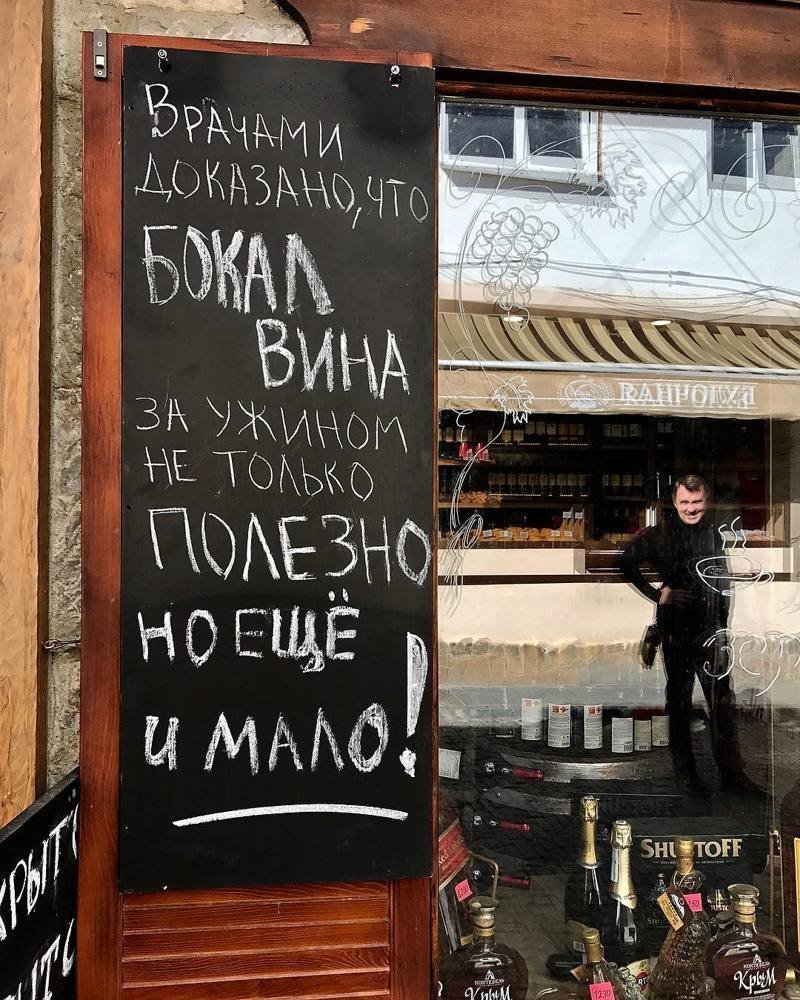 Врачами
доказано, что
бокал
вина
за ужином
не только
полезно
но ещё
и мало!
SHUSTOFF
КОКТЕБЕЛЬ
КрыМ
КОКТЕБЕЛЬ
КрыМ
1230